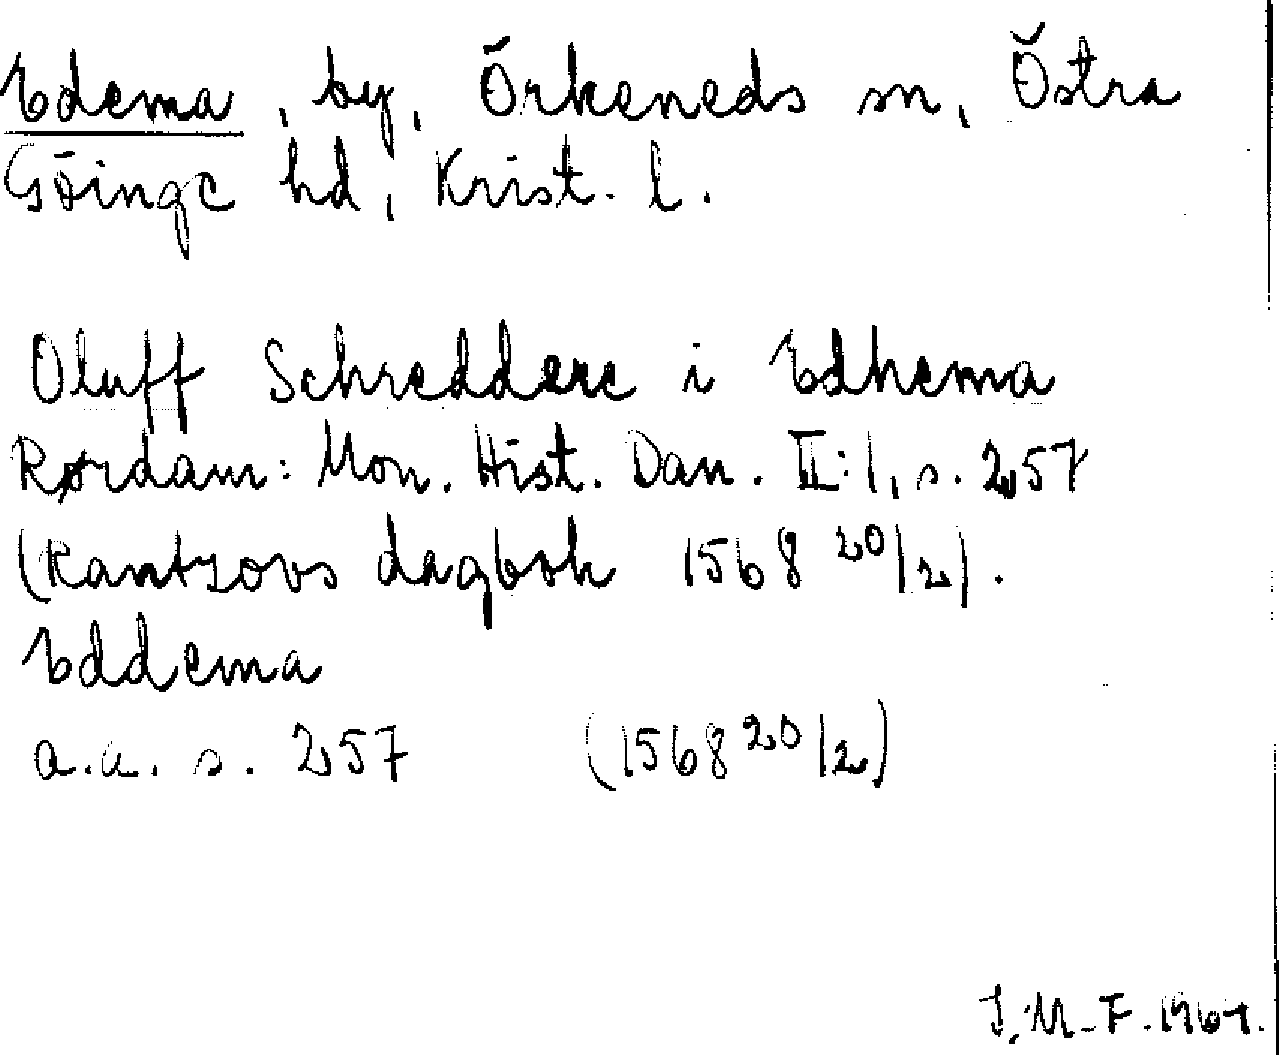 Edema, by, Örkeneds sn, Östra
Göinge hd, Krist. l.
Oluff Schreddere i Edhema
Rørdam: Mon. Hist. Dan. II:1, s. 257
(Rantzovs dagbok 1568 20/2).
Eddema
a.a. s. 257 (1568 20/2)
I.M-F. 1967.